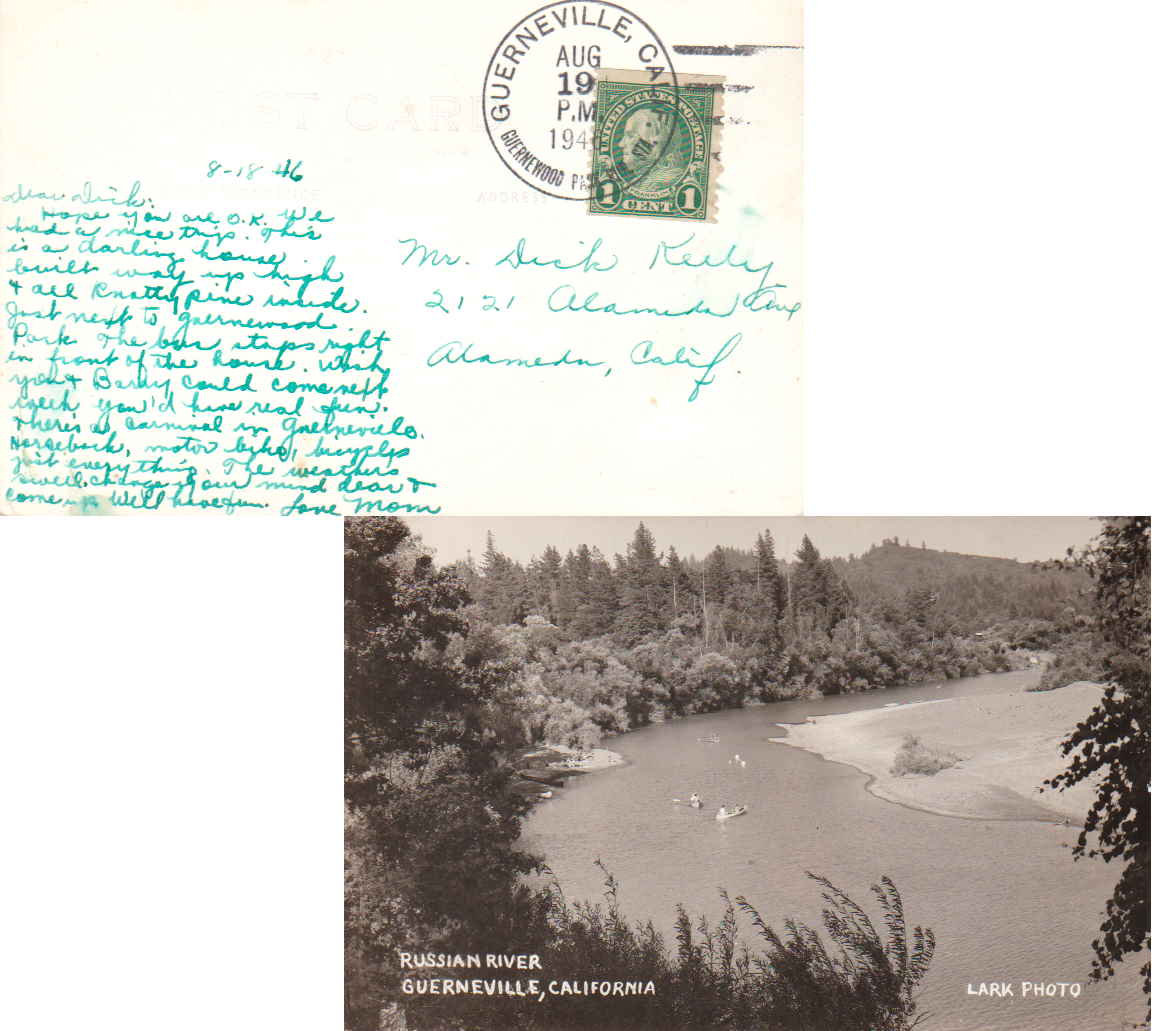 POST CARD
GUERNEVILLE, CALIF.
AUG
19
P.M
1946
GUERNEWOOD PARK RUR. STA.
UNITED STATES POSTAGE
FRANKLIN
1 CENT 1
CORRESPONDENCE
ADDRESS
8-18 46
Dear Dick:
Hope you are O.K. We
had a nice trip. This
is a darling house.
built way up high
& all Knotty pine inside.
Just next to Guernewood
Park. The bus stops right
in front of the house. Wish
you & Barry could come next
week you'd have real fun.
There's a carnival in Guerneville.
Horseback, motor bike, bicycles
just everything. The weather's
swell. change your mind dear &
come up. We'll have fun. Love Mom
Mr. Dick Keily
2121 Alameda Ave
Alameda, Calif.
RUSSIAN RIVER
GUERNEVILLE, CALIFORNIA
LARK PHOTO